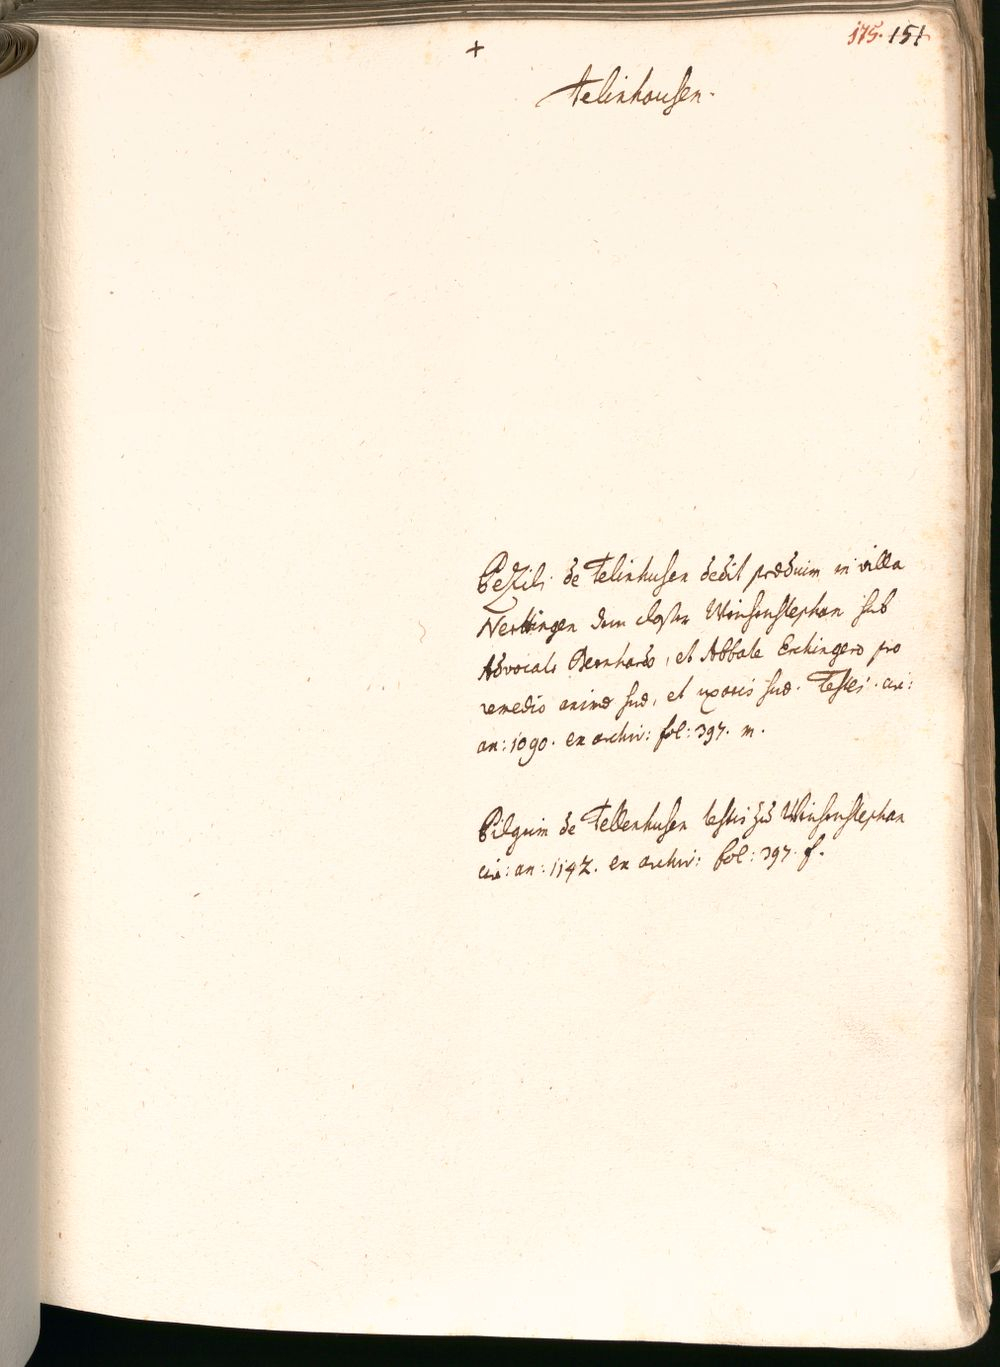 +
175. 151
Telinhousen.
Pezili de Telinhusen dedit prædium in villa
Nerttingen dem closter Weihenstephan sub
Advocato Bernhardo, et Abbate Erchingero pro
remedio animæ suæ, et uxoris suæ. Testes. cir:
an: 1090. ex archiv: fol: 397. m.
Pilgrim de Tellenhusen testis zu Weihenstephan
cir: an: 1142. ex archiv: fol: 397. f.